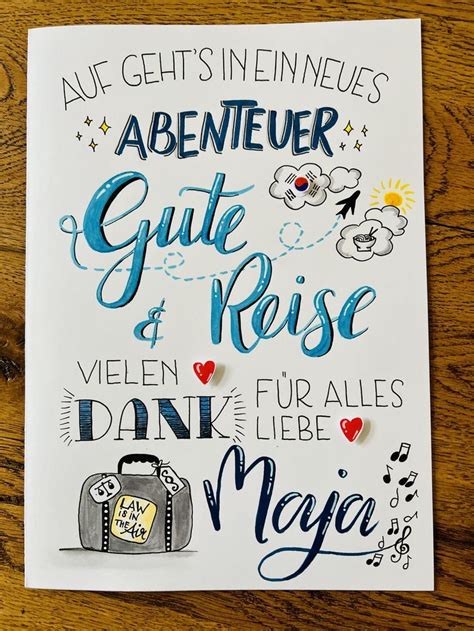 AUF GEHT'S IN EIN NEUES
ABENTEUER
Gute
& Reise
VIELEN
DANK
FÜR ALLES
LIEBE
Maja
LAW
IS IN
THE
Air